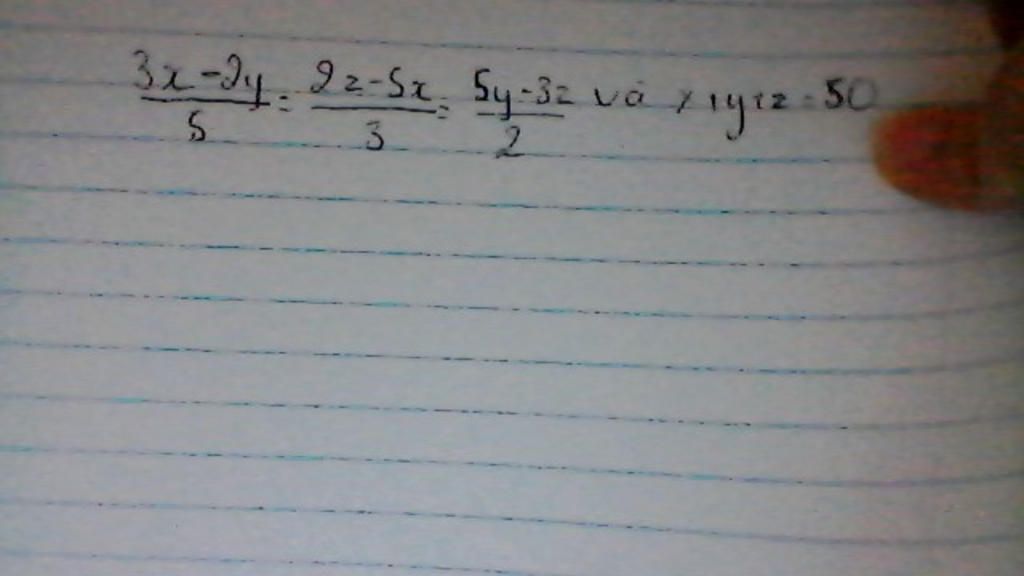 3x-2y/5 = 2z-5x/3 = 5y-3z/2 và x+y+z=50